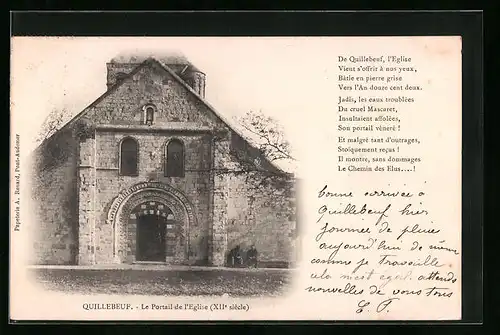 De Quillebeuf, l'Eglise
Vient s'offrir à nos yeux,
Bâtie en pierre grise
Vers l'An douze cent deux.
Jadis, les eaux troublées
Du cruel Mascaret,
Insultaient affolées,
Son portail vénéré !
Et malgré tant d'outrages,
Stoïquement reçus !
Il montre, sans dommages
Le Chemin des Elus....!
bonne arrivée à
Quillebeuf hier
journée de pluie
aujourd'hui de même
comme je travaille
cela m'est égal. attends
nouvelles de vous tous
Papeterie A. Renard, Pont-Audemer
QUILLEBEUF. - Le Portail de l'Eglise (XIIe siècle)